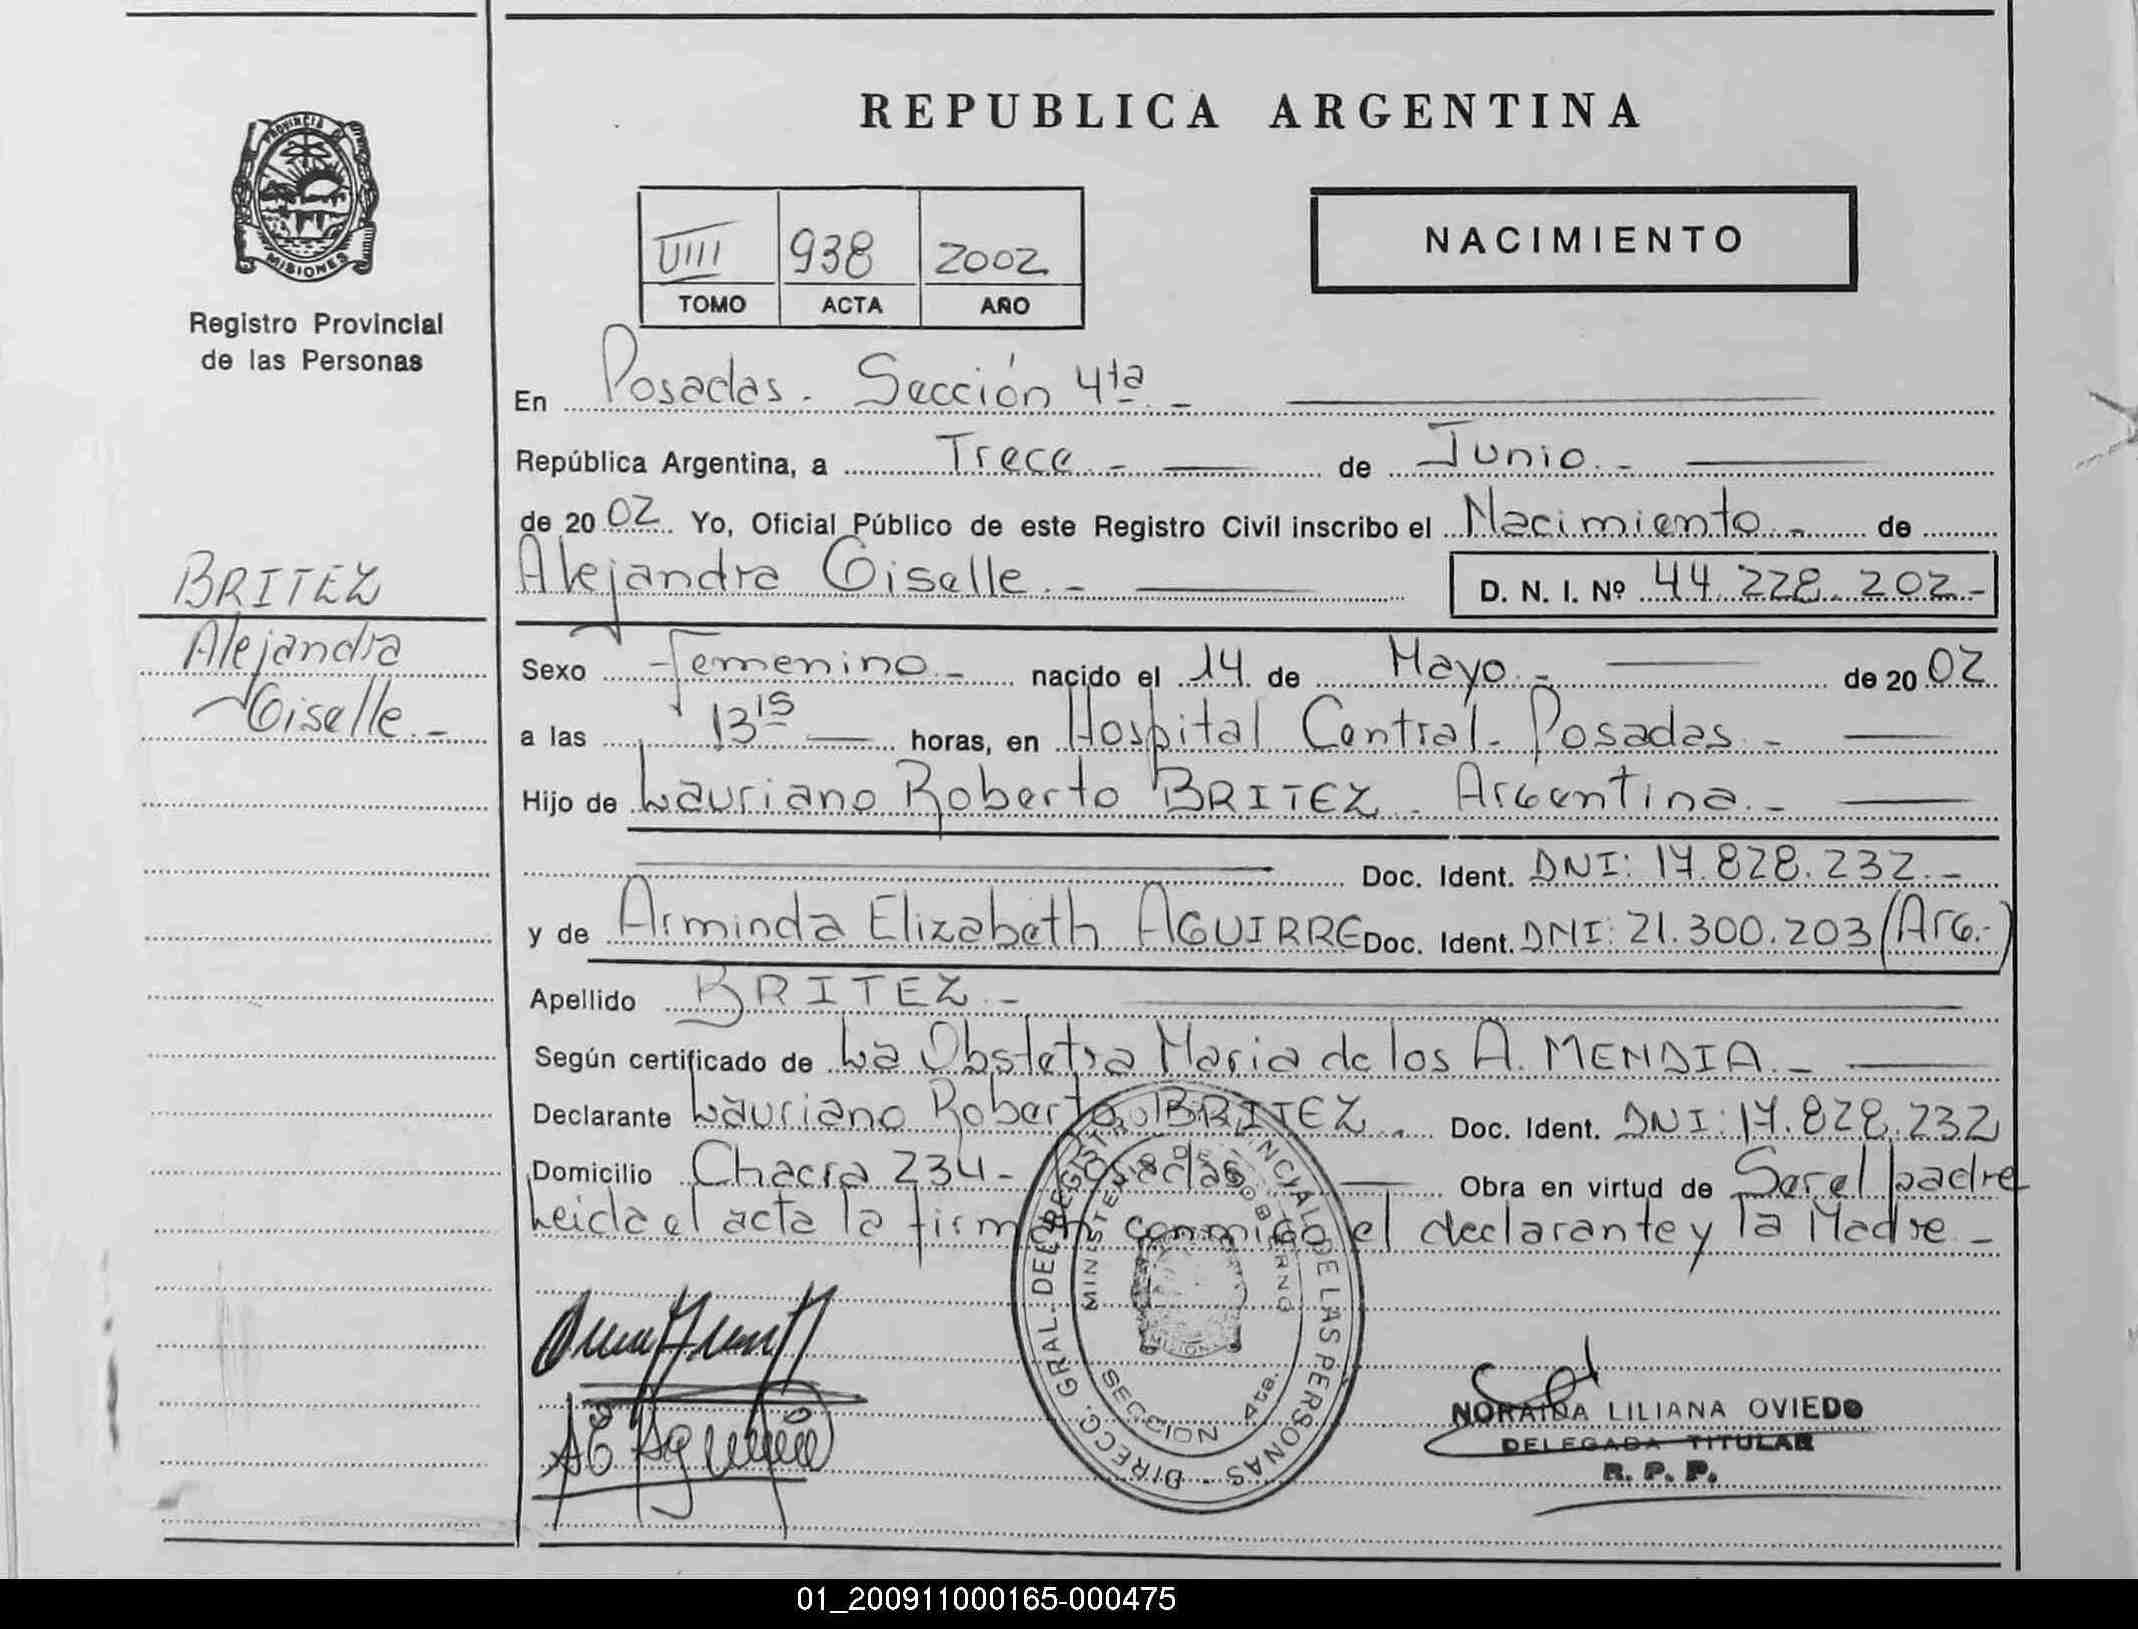 REPUBLICA ARGENTINA
PROVINCIA DE
MISIONES
Registro Provincial
de las Personas
NACIMIENTO
VIII 938 2002
TOMO ACTA AÑO
En Posadas. Sección 4ta.-
República Argentina, a Trece.- de Junio.-
de 2002. Yo, Oficial Público de este Registro Civil inscribo el Nacimiento.- de
Alejandra Giselle.- D. N. I. Nº 44.228.202.-
BRITEZ
Alejandra
Giselle.-
Sexo Femenino.- nacido el 14 de Mayo.- de 2002
a las 13 15 horas, en Hospital Central- Posadas.-
Hijo de Lauriano Roberto BRITEZ. Argentina.-
Doc. Ident. DNI: 17.828.232.-
y de Arminda Elizabeth AGUIRRE Doc. Ident. DNI: 21.300.203 (Arg.-)
Apellido BRITEZ.-
Según certificado de La Obstetra Maria de los A. MENDIA.-
Declarante Lauriano Roberto BRITEZ. Doc. Ident. DNI: 17.828.232
Domicilio Chacra 234- Posadas Obra en virtud de Ser el padre
Leida el acta la firman conmigo el declarante y la Madre-
DIRECC. GRAL. DEL REGISTRO PROVINCIAL DE LAS PERSONAS
MINISTERIO DE GOBIERNO
SECCION 4ta.
AE Aguirre
NORAIDA LILIANA OVIEDO
DELEGADA TITULAR
R. P. P.
01_200911000165-000475